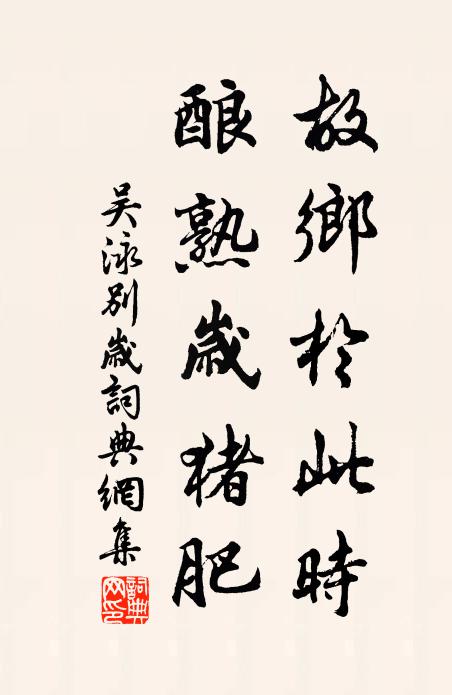 故鄉於此時
酿熟歲猪肥
吴泳別歲詞典網集
詞典网印